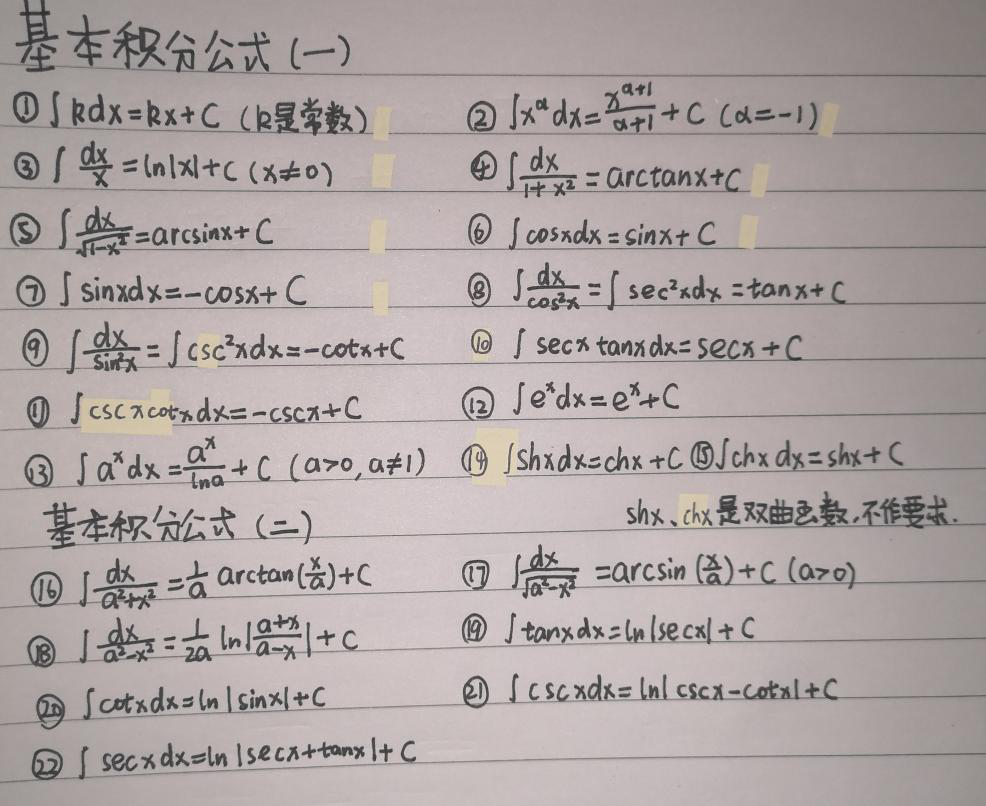 基本积分公式(一)
① ∫kdx=kx+C (k是常数) ② ∫x^α dx=x^(α+1)/(α+1)+C (α=-1)
③ ∫dx/x=ln|x|+C (x≠0) ④ ∫dx/(1+x²)=arctanx+C
⑤ ∫dx/√(1-x²)=arcsinx+C ⑥ ∫cosxdx=sinx+C
⑦ ∫sinxdx=-cosx+C ⑧ ∫dx/cos²x=∫sec²xdx=tanx+C
⑨ ∫dx/sin²x=∫csc²xdx=-cotx+C ⑩ ∫secxtanxdx=secx+C
⑪ ∫cscxcotxdx=-cscx+C ⑫ ∫e^x dx=e^x+C
⑬ ∫a^x dx=a^x/lna+C (a>0,a≠1) ⑭ ∫shxdx=chx+C ⑮ ∫chxdx=shx+C
基本积分公式(二) shx、chx是双曲函数,不作要求.
⑯ ∫dx/(a²+x²)=1/a arctan(x/a)+C ⑰ ∫dx/√(a²-x²)=arcsin(x/a)+C (a>0)
⑱ ∫dx/(a²-x²)=1/2a ln|(a+x)/(a-x)|+C ⑲ ∫tanxdx=ln|secx|+C
⑳ ∫cotxdx=ln|sinx|+C ㉑ ∫cscxdx=ln|cscx-cotx|+C
㉒ ∫secxdx=ln|secx+tanx|+C